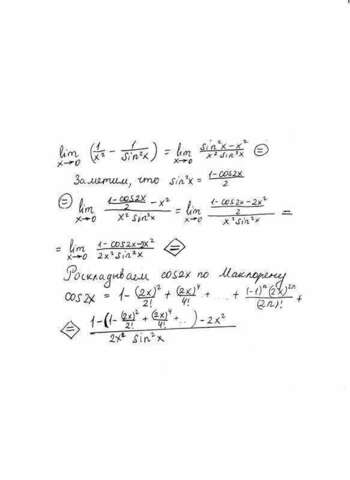 lim x→0 (1/x² − 1/sin²x) = lim x→0 (sin²x − x²)/(x² sin²x) ⊜
Заметим, что sin²x = (1−cos2x)/2
⊜ lim x→0 ((1−cos2x)/2 − x²)/(x² sin²x) = lim x→0 ((1−cos2x−2x²)/2)/(x² sin²x) =
= lim x→0 (1−cos2x−2x²)/(2x² sin²x) ⟨=⟩
Роскладываем cos2x по Маклорену
cos2x = 1 − (2x)²/2! + (2x)⁴/4! + .... + (−1)ⁿ(2x)²ⁿ/(2n)! +
⟨=⟩ (1−(1−(2x)²/2! + (2x)⁴/4! + ..) − 2x²)/(2x² sin²x)